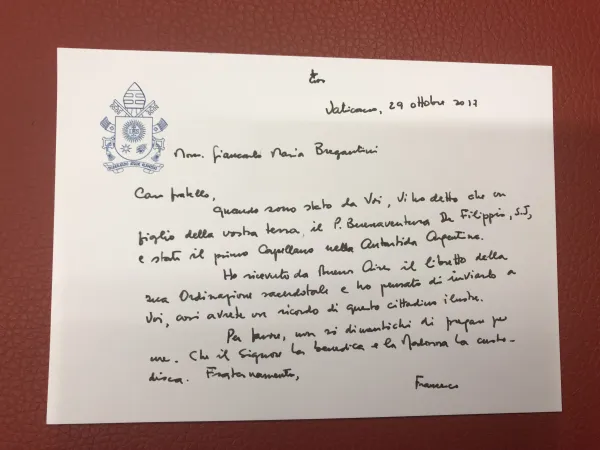 Vaticano, 29 ottobre 2017
Mons. Giancarlo Maria Bregantini
Caro fratello,
quando sono stato da Voi, Vi ho detto che un
figlio della vostra terra, il P. Buenaventura De Filippis, S.J,
è stato il primo Capellano nella Antartida Argentina.
Ho ricevuto da Buenos Aires il libretto della
sua Ordinazione sacerdotale e ho pensato di inviarlo a
Voi, così avrete un ricordo di questo cittadino illustre.
Per favore, non si dimentichi di pregare per
me. Che il Signore La benedica e la Madonna La custo-
disca. Fraternamente,
Francesco